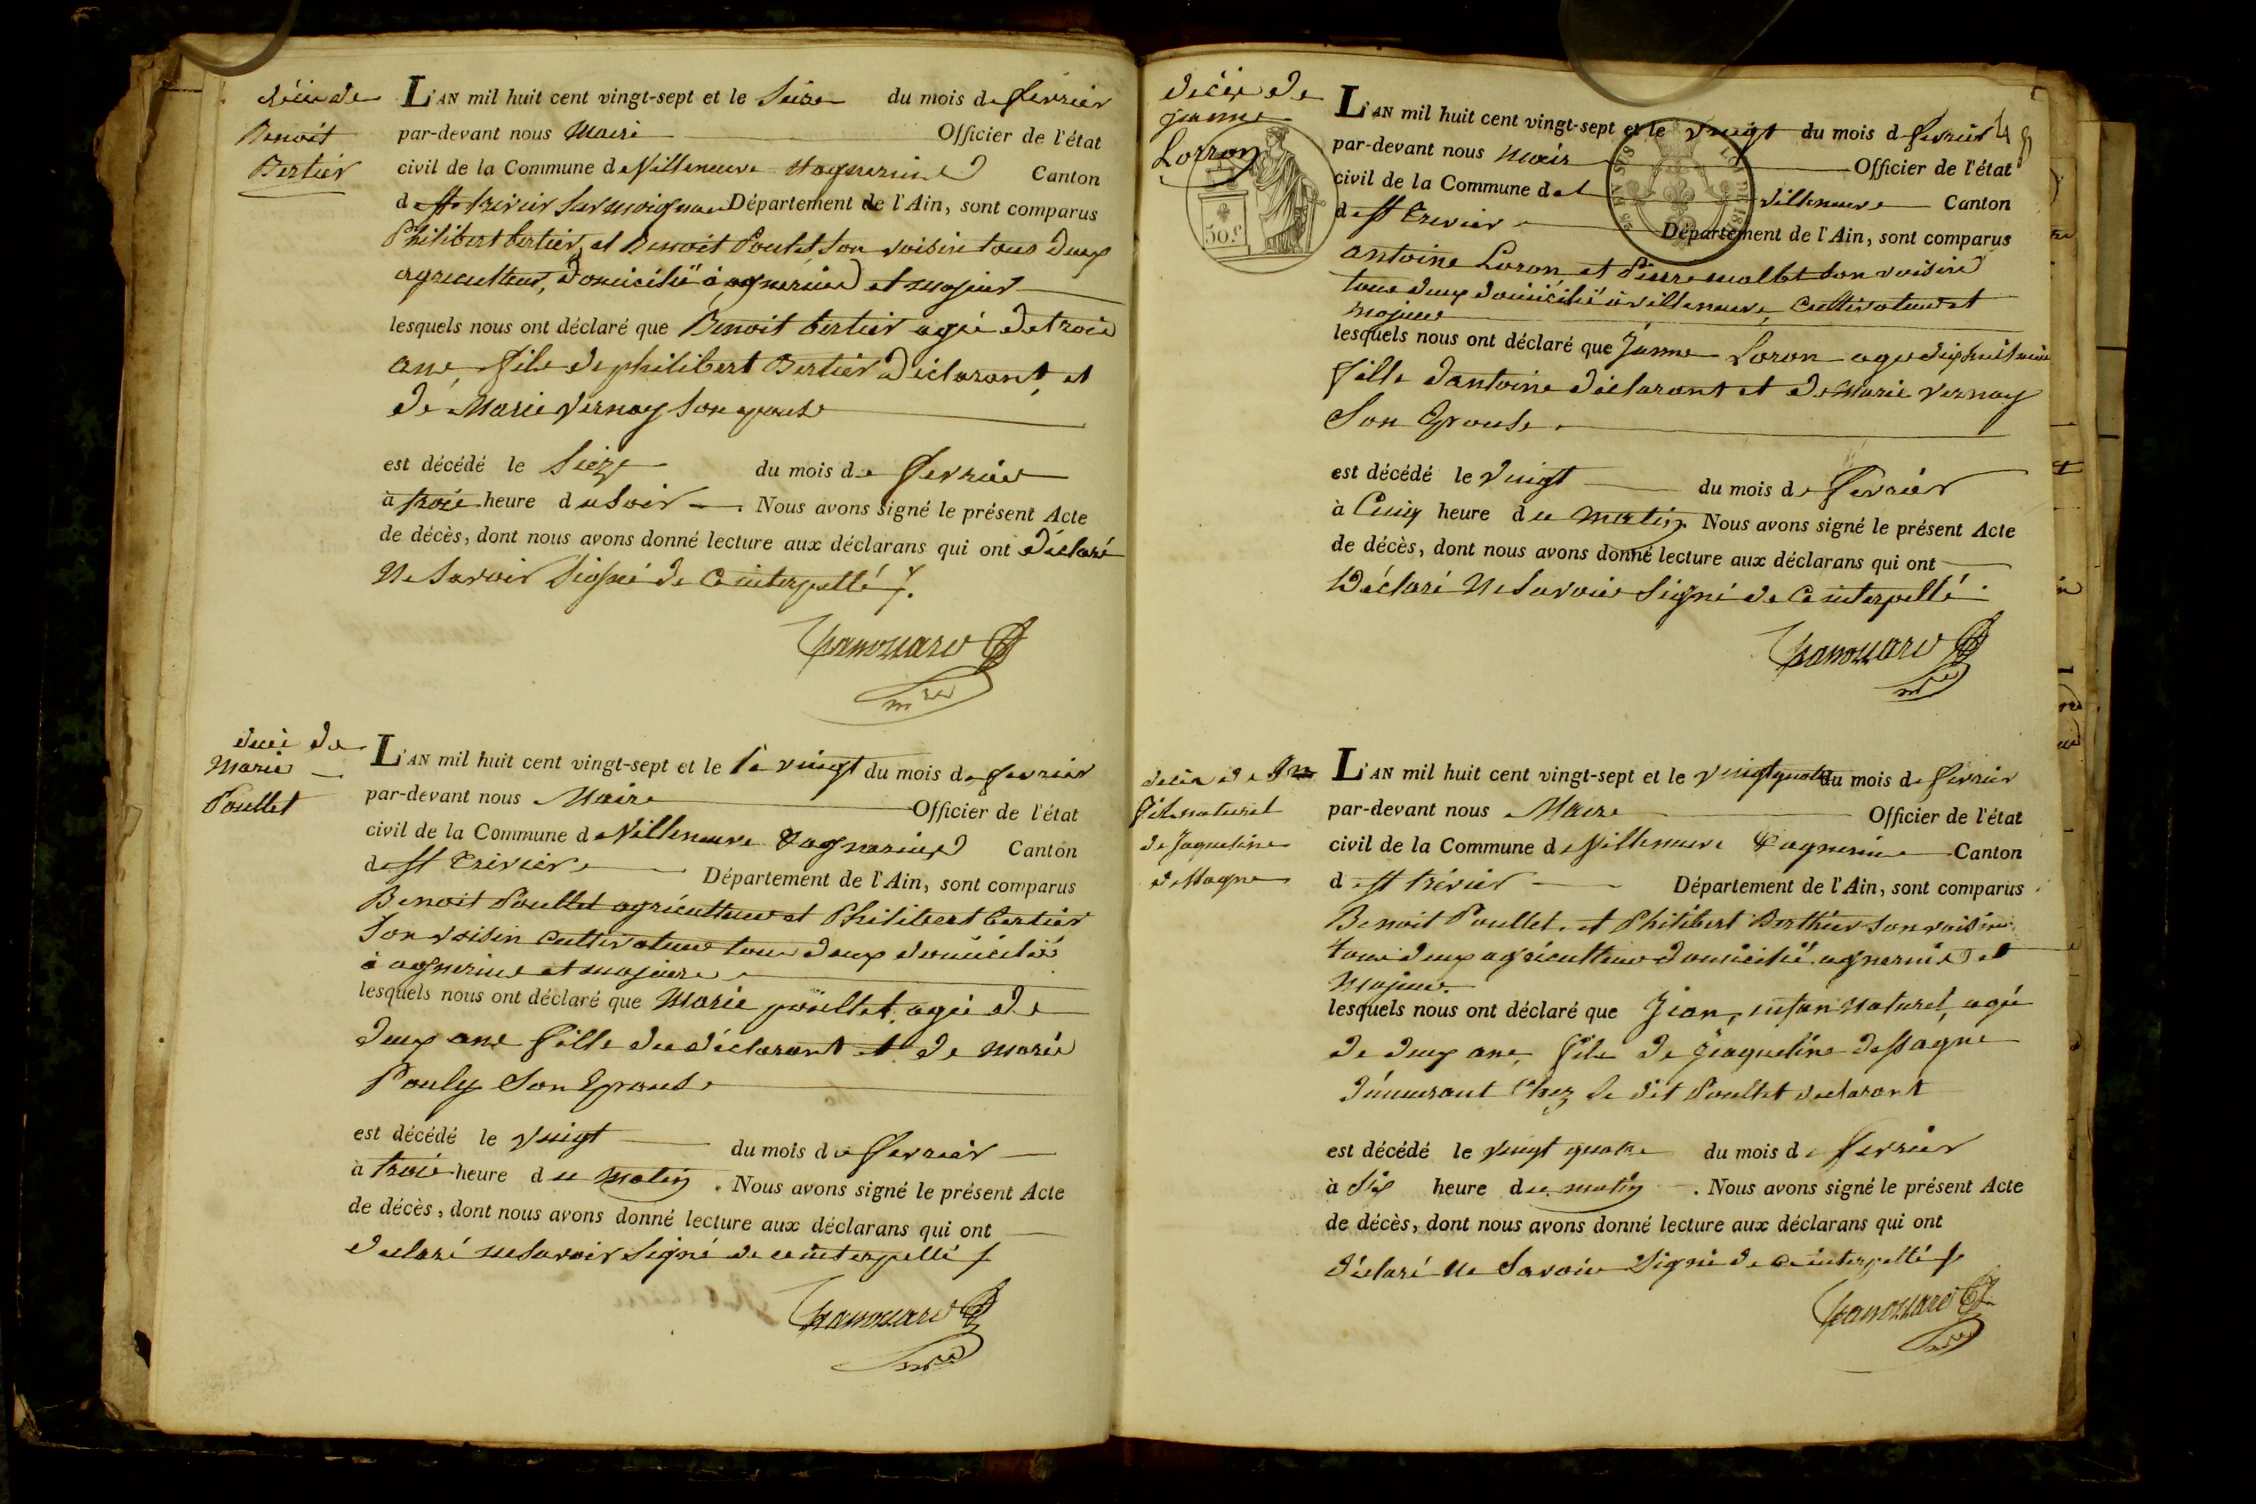 décè de
Benoit
Bertier
L'AN mil huit cent vingt-sept et le Seize du mois de fevrier
par-devant nous Maire Officier de l'état
civil de la Commune de Villeneuve Canton
de St trivier sur moignan Département de l'Ain, sont comparus
Philibert bertier, et Benoit Poulet, son voisin tous deux
agriculteur, domicilié à agnerin et majeur
lesquels nous ont déclaré que Benoit bertier agé de trois
ans, fils de philibert Bertier Déclarant, et
de Marie vernay son epouse
est décédé le Sieze du mois de fevrier
à trois heure du Soir. Nous avons signé le présent Acte
de décès, dont nous avons donné lecture aux déclarans qui ont déclaré
Ne Savoir Signé de ce interpellé
decè de
Marie
Poullet
L'AN mil huit cent vingt-sept et le le vingt du mois de fevrier
par-devant nous Maire Officier de l'état
civil de la Commune de Villeneuve Canton
de St trivier Département de l'Ain, sont comparus
Benoit Poullet agriculteur et Philibert bertier
Son voisin cultivateur tous deux domicilié
à agnerin et majeure
lesquels nous ont déclaré que Marie poullet, agé de
deux ans fille du déclarant et de marie
Pouly Son Epouse
est décédé le vingt du mois de fevrier
à trois heure du matin. Nous avons signé le présent Acte
de décès, dont nous avons donné lecture aux déclarans qui ont
declaré ne Savoir Signé de ce interpellé
décè de
janne
Lorron
50 c
L'AN mil huit cent vingt-sept et le vingt du mois de fevrier
par-devant nous Mair Officier de l'état
civil de la Commune de villeneuve Canton
de St Trivier Département de l'Ain, sont comparus
antoine Loron et Pierre mollet son voisin
tous deux domicilié à villeneuve, cultivateur et
majeur
lesquels nous ont déclaré que Janne Loron age dixhuit mois
fille d'antoine déclarant et de Marie vernay
Son Epouse.
est décédé le vingt du mois de fevrier
à Cinq heure du matin. Nous avons signé le présent Acte
de décès, dont nous avons donné lecture aux déclarans qui ont
Déclaré Ne Savoir Signé de ce interpellé
décès de
fils naturel
de Jaqueline
desagne
L'AN mil huit cent vingt-sept et le vingtquatre du mois de fevrier
par-devant nous Maire Officier de l'état
civil de la Commune de Villeneuve Canton
de St trivier Département de l'Ain, sont comparus
Benoit Poullet et Philibert Berthier son voisin
tous deux agriculteur domicilié agnerin et
majeur.
lesquels nous ont déclaré que Jean, enfan Naturel, agé
de deux ans, fils de Jaqueline dessagne
demeurant Chez le dit Poullet declarant
est décédé le vingt quatre du mois de fevrier
à Six heure du matin. Nous avons signé le présent Acte
de décès, dont nous avons donné lecture aux déclarans qui ont
déclaré Ne Savoir Signé de ce interpellé